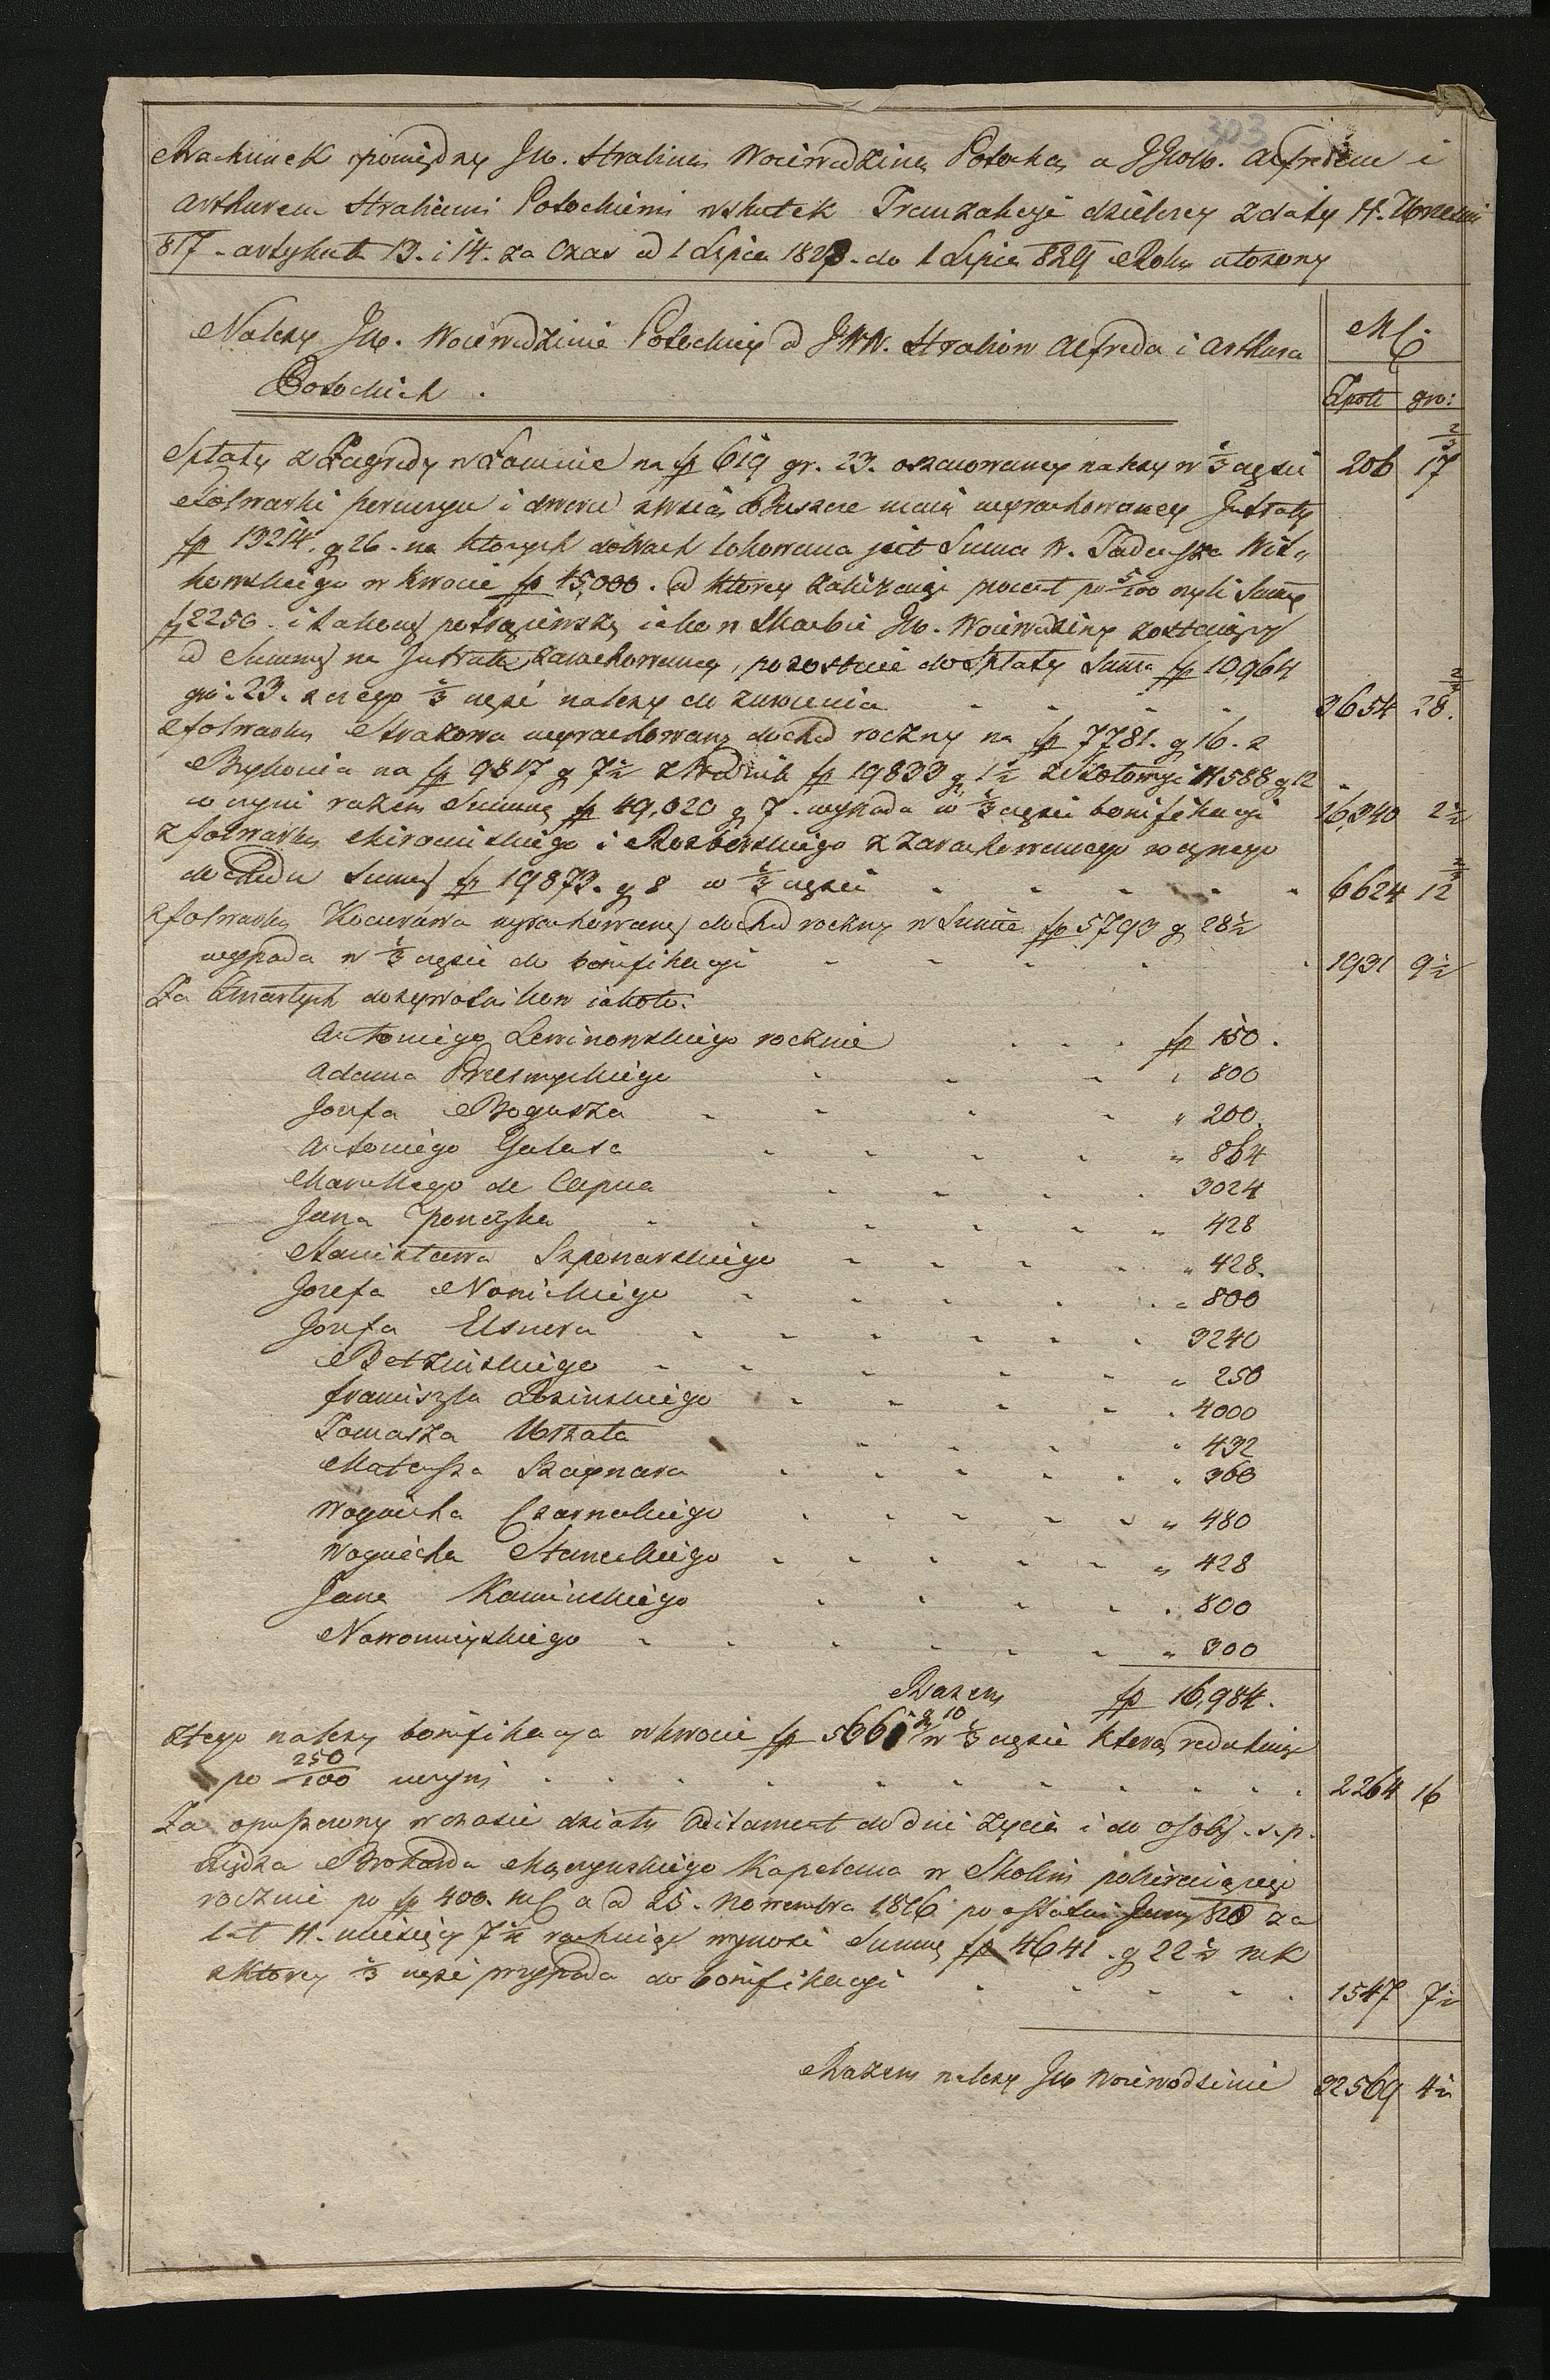 303
Rachunek pomiędzy JW. Hrabiną Woiewodziną Potocką a JJWW. Alfredem i
Arthurem Hrabiami Potockiemi wskutek Tranzakcyi działowey z daty 4. Wrzesnia
817 - artykułu 13. i 14. za czas od 1 Lipca 1828 - do 1 Lipca 829 Roku ułożony
Należy JW. Woiewodzinie Potockiey od JWW. Hrabiow Alfreda i Arthura
Potockich .
Złote gro:
Spłaty z Zagrody w Łowinie na fp 619 gr. 23. oszacowaney należy w 1/3 części 206 17 2/3
Folwarki
fp 13214. g 26. na ktorych dobrach lokowana jest Suma W. Tadeusza Wit=
kowskiego w kwocie fp 45,000. od ktorey zaliczaiąc procent po 5/100 czyli Summę
fp 2250. i takową potrąciwszy iako w Skarbie JW. Woiewodziny zostaiący
od Summy na Intratę zarachowaney, pozostaie do Spłaty Suma fp 10,964
gr. 23. z czego 1/3 część należy do zwrocenia - - - - 3654 28. 2/3
Z folwarku Strazowa wyrachowany dochod roczny na fp 7781. g 16. z
Brykonia na fp 9817 g 7 1/2 z fp 19833 g 1 1/2 z 11588 g 12
co czyni razem Summę fp 49,020 g 7. wypada w 1/3 części bonifikacyi 16,340 2 1/2
Z folwarku Mirocinskiego i Rozborskiego z zarachowanego rocznego
dochodu Summy fp 19873. g 8 w 1/3 części - - - - - 6624 12 2/3
Z folwarku wyrachowany dochod roczny w Sumie fp 5793 g 28 1/2
wypada w 1/3 części do bonifikacyi - - - - - 1931 9 1/2
Za zmarłych dożywotnikow iakoto:
Antoniego Lewinowskiego rocznie . . . fp 150 .
Adama Przesmyckiego - - - " 800
Jozefa Bogusza - - - - " 200.
Antoniego Galasa - - - - " 864
Marckego de Capua - - - - 3024
Jana Poneczka - - - - - " 428
Stanisława Szponarskiego - - - - " 428.
Jozefa Nowickiego - - - - - " 800
Jozefa Elsnera - - - - - - 3240
Betzinskiego - - - - - " 250
Franciszka Łozinskiego - - - - . 4000
Tomasza Wrzata - - - " 432
Mateusza Szapnara - - - - - " 360
Woyciecha Czarneckiego - - - - - " 480
Woyciecha Staneckiego - - - - - " 428
Jana Kaminskiego - - - - . 800
Nowomieyskiego - - - - - " 300
Razem fp 16,984.
Z tego należy bonifikacya w kwocie fp 5661 g 10 w 1/3 części ktorą redukuiąc
po 250/100 czyni . . . . . . . . . . 2264 16
Za opuszczony w czasie działu Aditament do dni życia i do osoby s. p.
Xiędza Brokarda Męczynskiego Kapelana w Skolim pobieraiącego
rocznie po fp 400. MC a od 25. Nowembra 1816 po ostatni Juny 828 za
lat 11. miesięcy 7 1/4 rachuiąc wynosi Summę fp 4641. g 22 1/2 mk
z ktorey 1/3 część przypada do bonifikacyi - - - - . 1547 7 1/2
Razem należy JW Woiewodzinie 32569 4 1/2